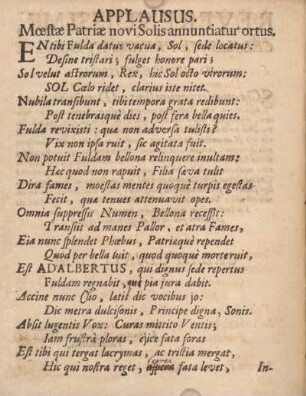 APPLAUSUS.
Mœstæ Patriæ novi Solis annuntiatur ortus.
EN tibi Fulda datus vacua, Sol, sede locatus:
Desine tristari; fulget honore pari;
Sol velut astrorum, Rex, hic Sol octo virorum:
SOL Cœlo ridet, clarius iste nitet.
Nubila transibunt, tibi tempora grata redibunt:
Post tenebrasquè dies, post fera bella quiet.
Fulda revixisti: qua non adversa tulisti?
Vix non ipsa ruit, sic agitata fuit.
Non potuit Fuldam bellona relinquere inultam:
Hac quod non rapuit, Filia sæva tulit
Dira fames, moestas mentes quoquè turpis egestas
Fecit, quæ tenues attenuavit opes.
Omnia suppressit Numen, Bellona recessit:
Transiit ad manes Pallor, et atra Fames,
Eia nunc splendet Phœbus, Patriaquè rependet
Quod per bella luit, quod quoquè morte ruit,
Est ADALBERTUS, qui dignus sede repertus
Fuldam regnabit, quâ pia jura dabit.
Accine nunc Clio, latis dic vocibus jo:
Dic metra dulcisonis, Principe digna, Sonis.
Absit lugentis Vox: Curas mittito Ventis;
Iam frustrà ploras, ejice fata foras
Est tibi qui tergat lacrymas, ac tristia mergat,
Hic qui nostra reget, aspera fata levet,
In-